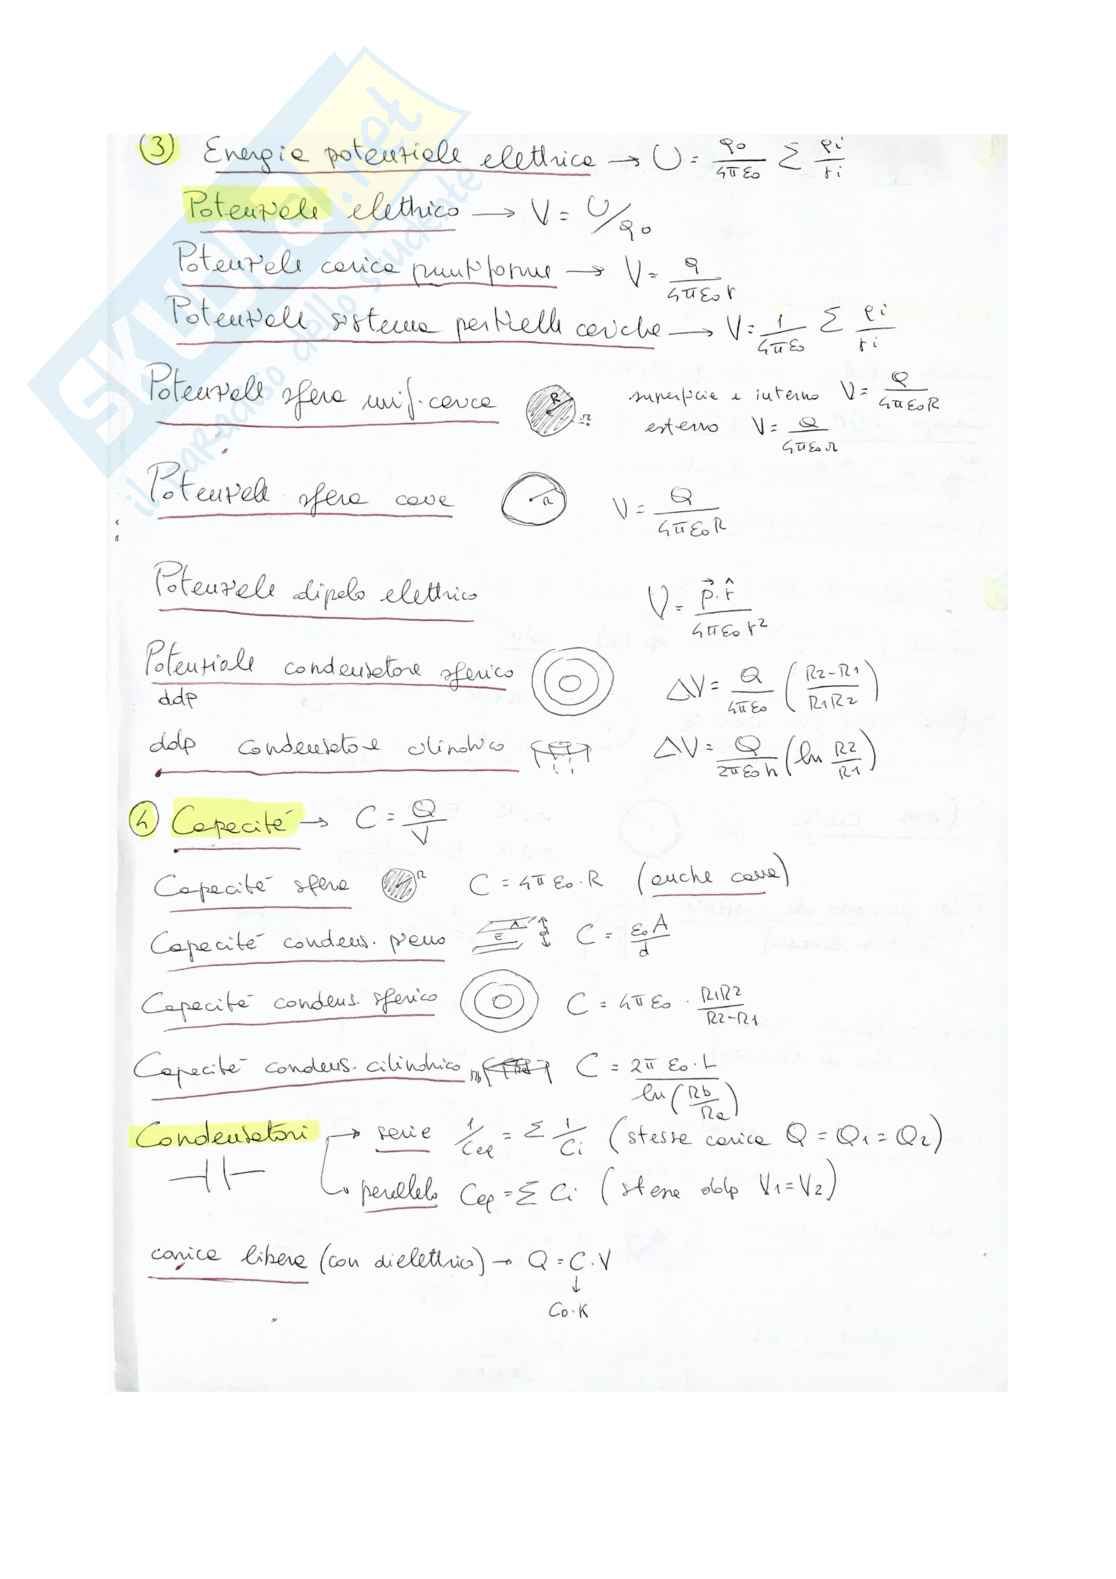 SKUOLA.net
il paradiso dello studente
3 Energia potenziale elettrica → U = q0/4πε0 Σ qi/ri
Potenziale elettrico → V = U/q0
Potenziale carica puntiforme → V = q/4πε0r
Potenziale sistema particelle cariche → V = 1/4πε0 Σ qi/ri
Potenziale sfera unif. carica R superficie e interno V = Q/4πε0R
esterno V = Q/4πε0r
Potenziale sfera cava R V = Q/4πε0R
Potenziale dipolo elettrico V = p⃗·r̂/4πε0r²
Potenziale condensatore sferico ΔV = Q/4πε0 (R2-R1/R1R2)
ddp
ddp condensatore cilindrico ΔV = Q/2πε0h (ln R2/R1)
4 Capacità → C = Q/V
Capacità sfera R C = 4πε0·R (anche cava)
Capacità condens. piano A C = ε0A/d
Capacità condens. sferico C = 4πε0 · R1R2/R2-R1
Capacità condens. cilindrico C = 2πε0·L/ln(Rb/Ra)
Condensatori → serie 1/Ceq = Σ 1/Ci (stessa carica Q = Q1 = Q2)
parallelo Ceq = Σ Ci (stessa ddp V1 = V2)
carica libera (con dielettrico) → Q = C·V
↓
C0·K